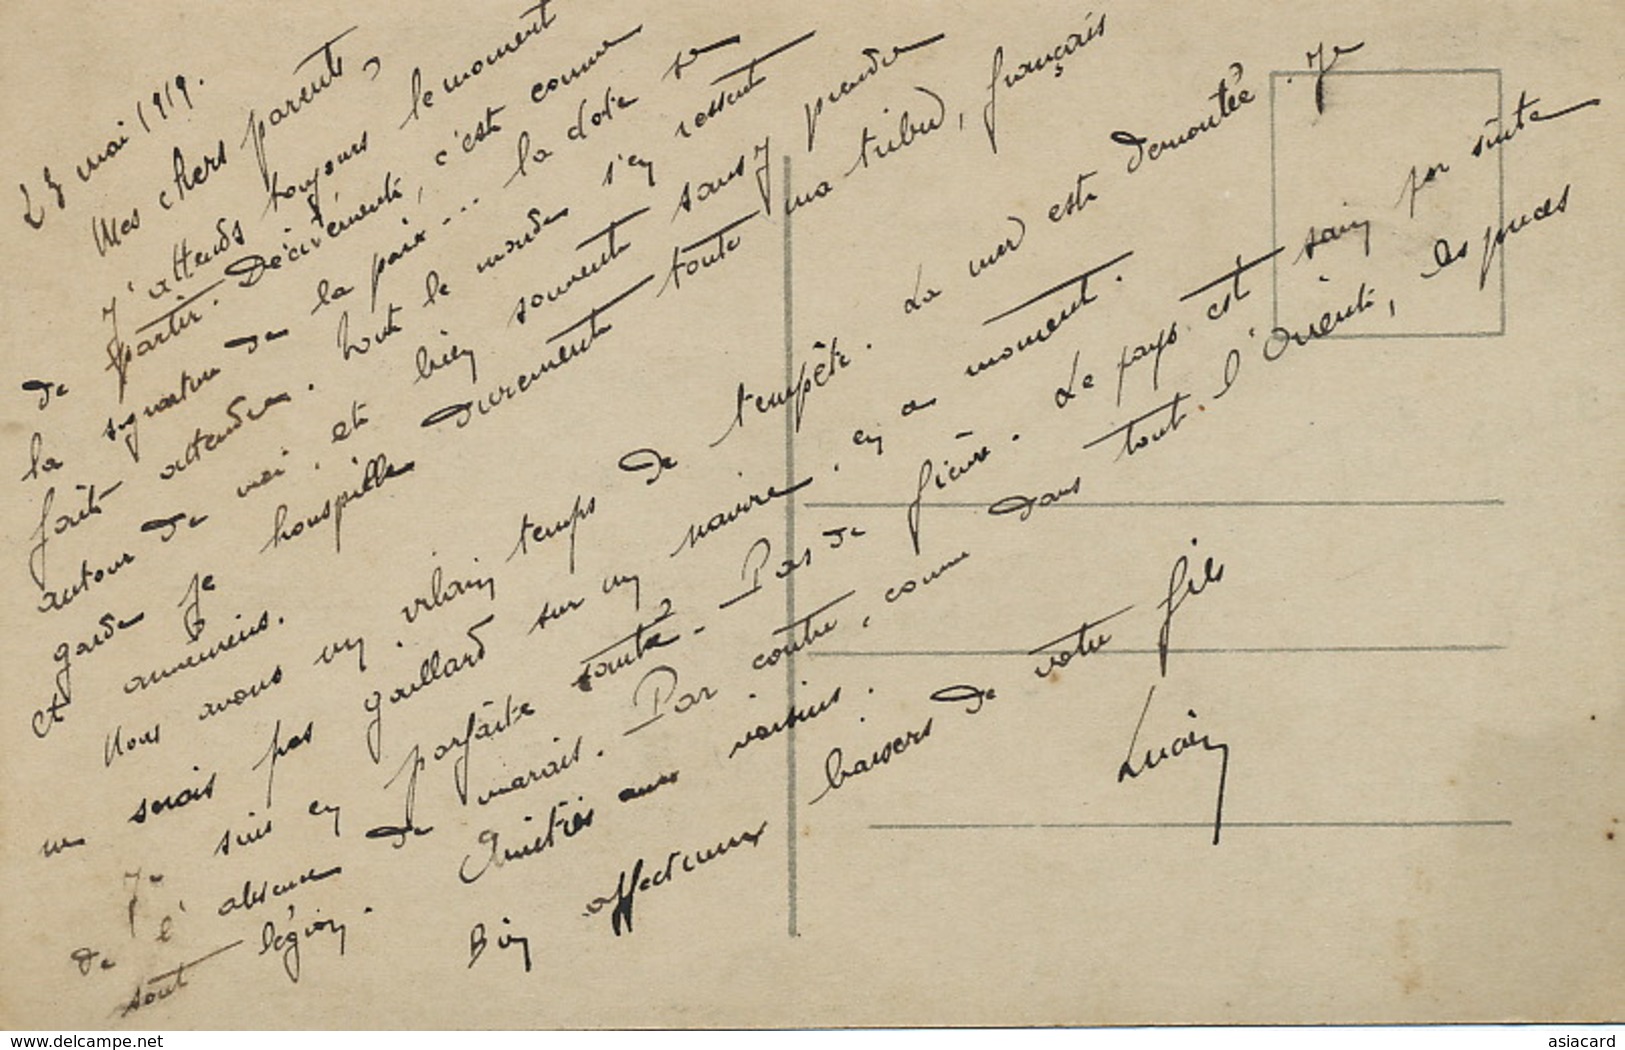 23 mai 1919.
Mes chers parents,
J'attends toujours le moment
de partir. Décidément, c'est comme
la signature de la paix... la date se
fait attendre. Tout le monde s'en ressent
autour de moi. et bien souvent sans y prendre
garde je houspille durement toute ma tribu, français
et annamites.
Nous avons un vilain temps de tempête. La mer est démontée. Je
ne serais pas gaillard sur un navire. en ce moment.
Je suis en parfaite santé. Pas de fièvre. Le pays est sain par suite
de l'absence de marais. Par contre, comme dans tout l'Orient, les puces
sont légion. Amitiés aux voisins.
Bien affectueux baisers de votre fils
Lucien
www.delcampe.net
asiacard